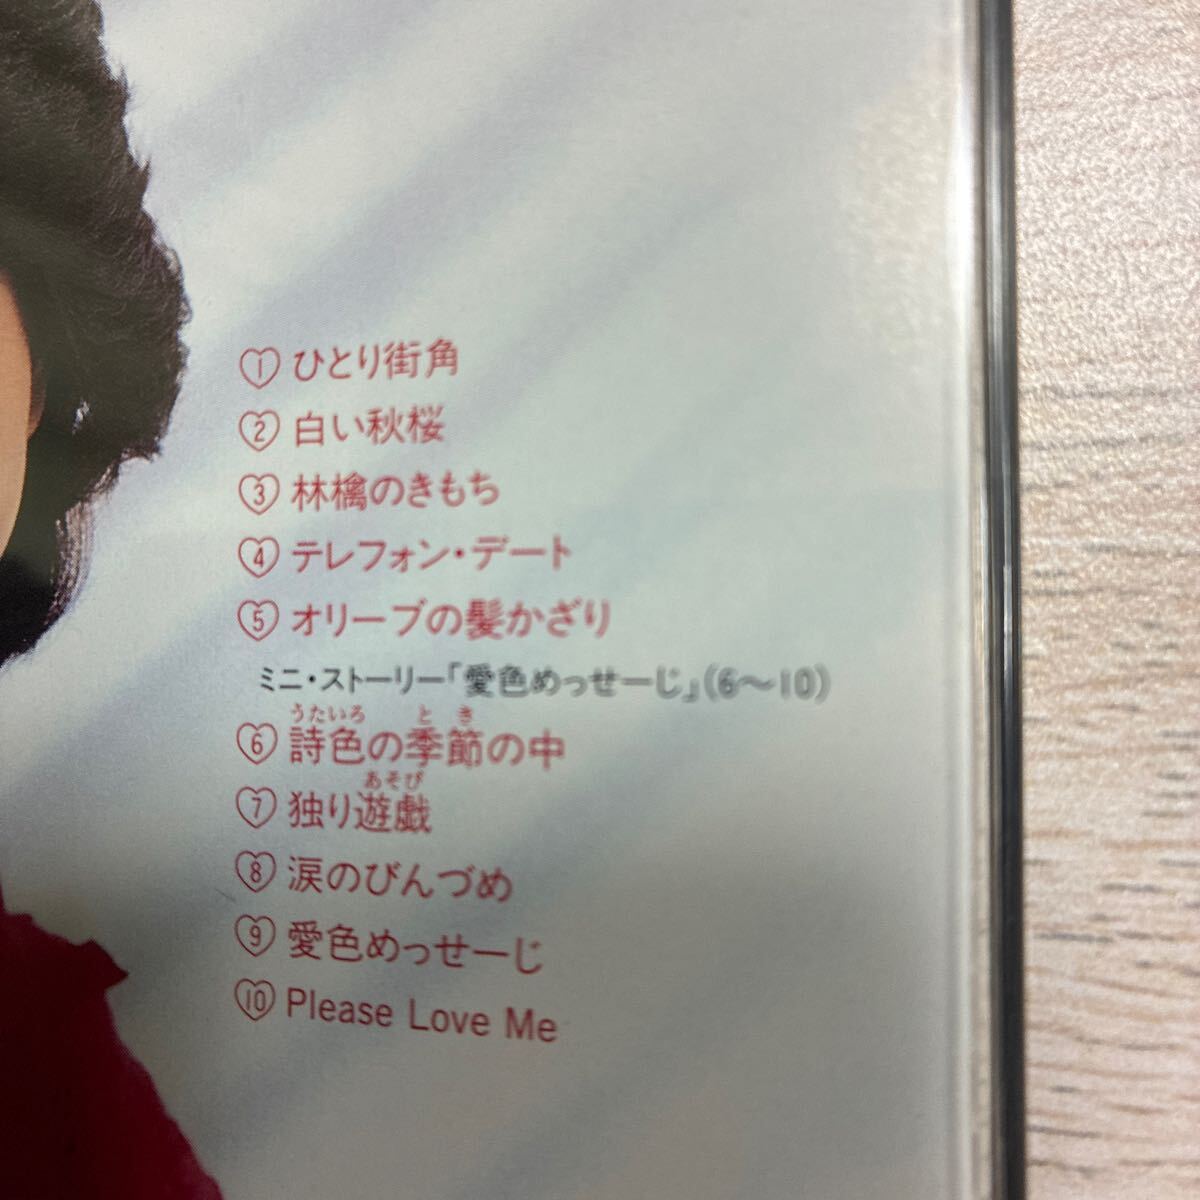 ① ひとり街角
② 白い秋桜
③ 林檎のきもち
④ テレフォン・デート
⑤ オリーブの髪かざり
ミニ・ストーリー「愛色めっせーじ」(6〜10)
うたいろ とき
⑥ 詩色の季節の中
あそび
⑦ 独り遊戯
⑧ 涙のびんづめ
⑨ 愛色めっせーじ
⑩ Please Love Me